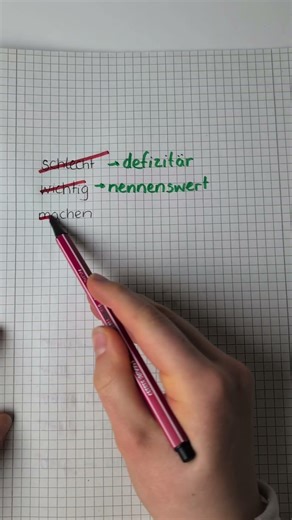 schlecht → defizitär
wichtig → nennenswert
machen